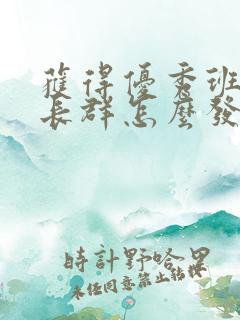 獲得優秀班
長群怎麼發
時計野哈果
未任同意禁止轉擬